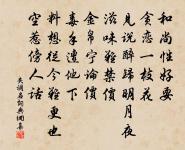 和尚性好耍
貪戀一枝花
見說醉歸明月夜
滋味難禁價
金帛寧論價
妻子遣他下
料想從今難更也
空惹傍人話